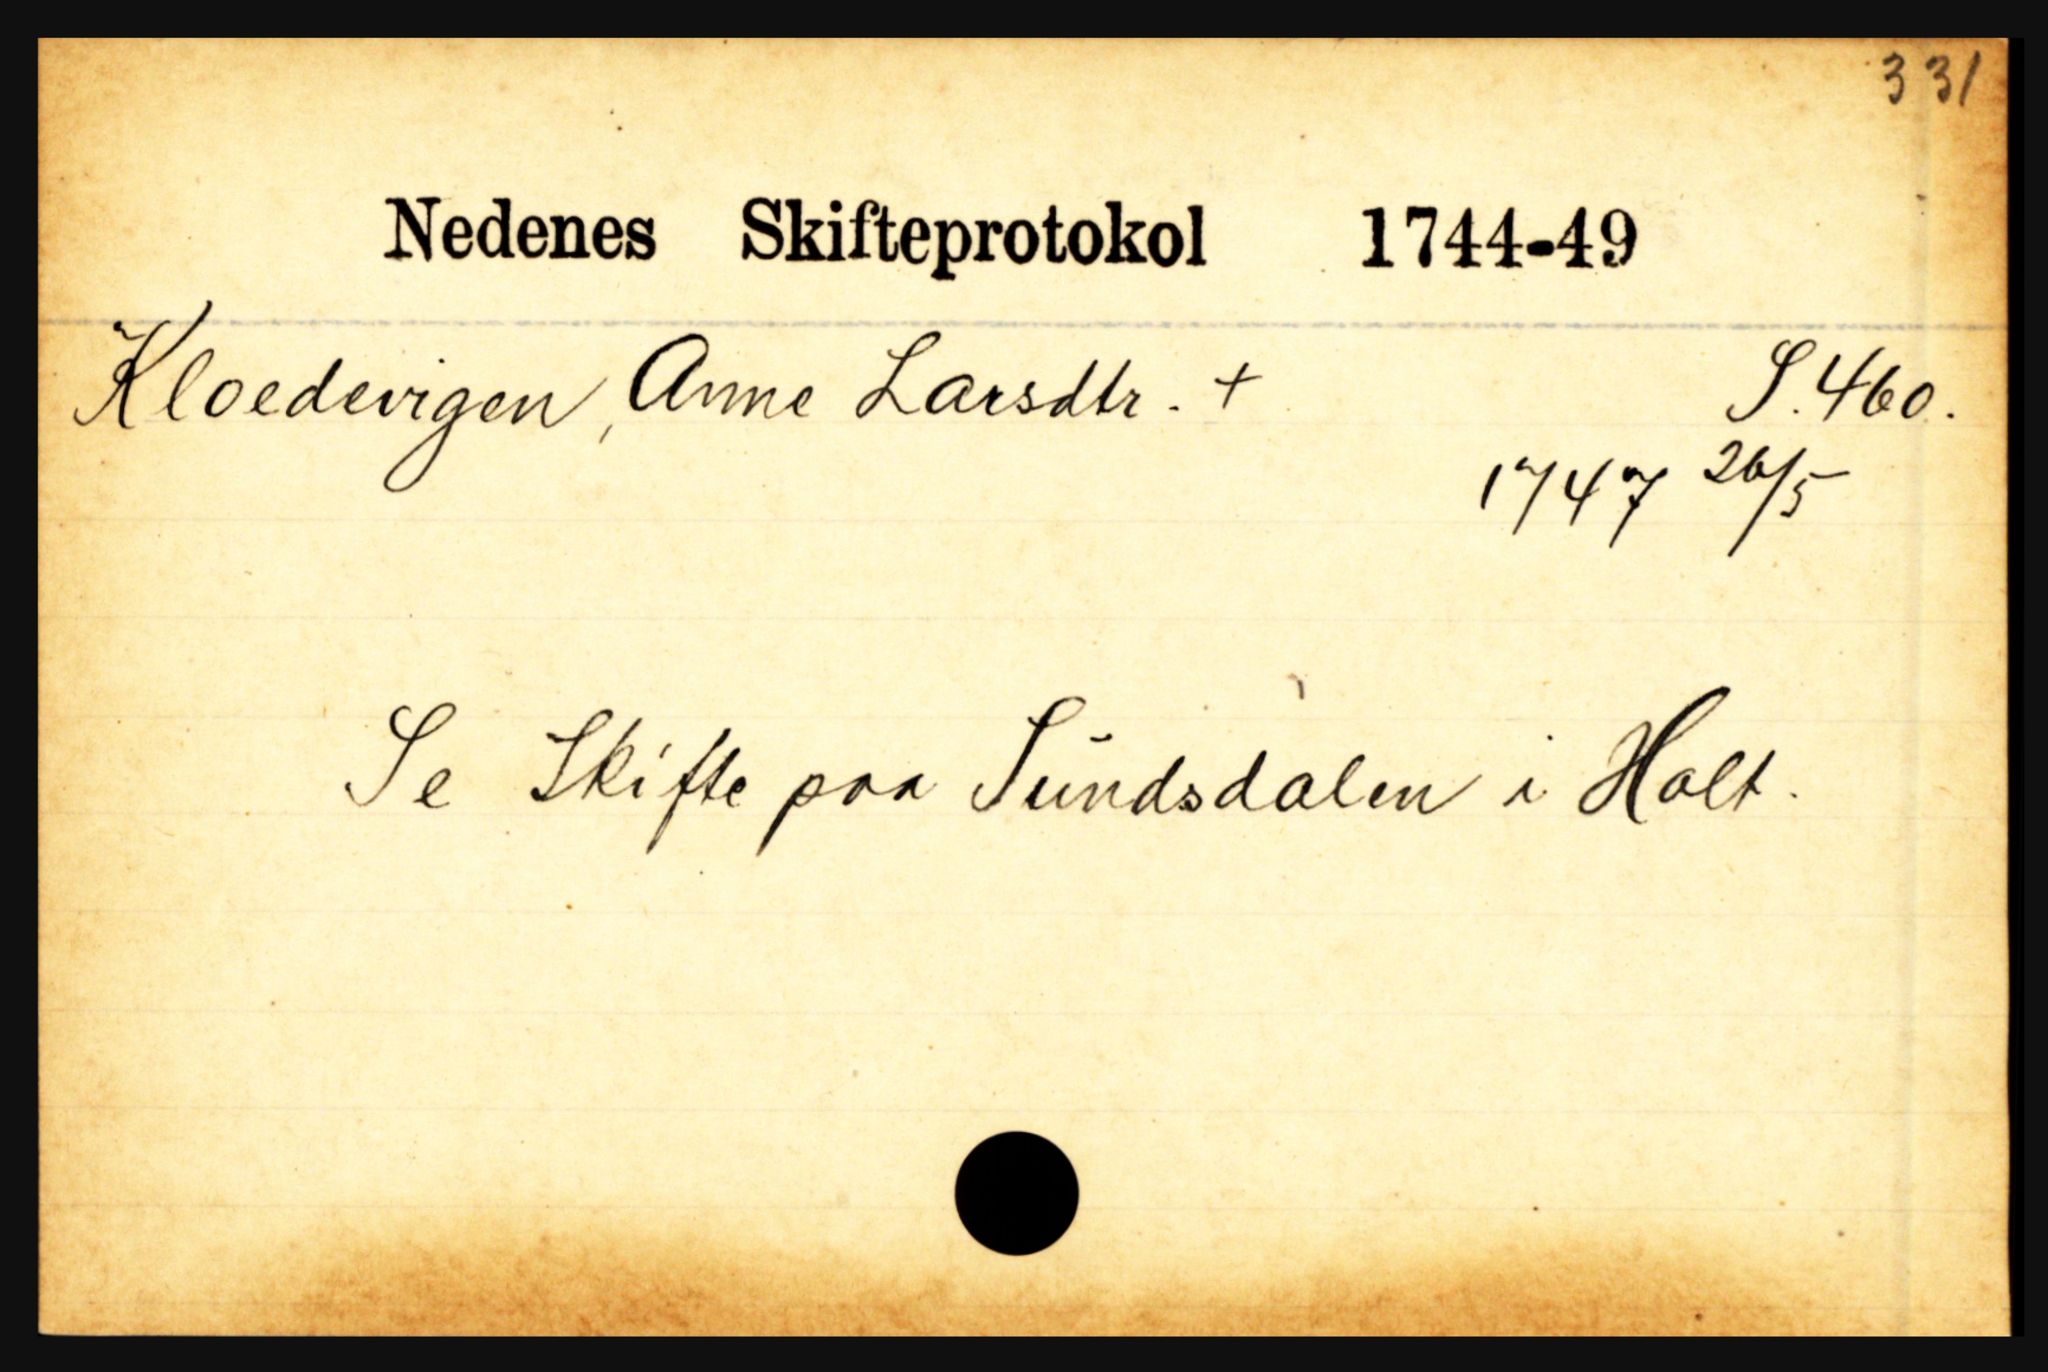 331
Nedenes Skifteprotokol 1744-49
Kloedevigen, Anne Larsdtr. + S. 460.
1747 26/5
Se Skifte paa Sundsdalen i Holt.